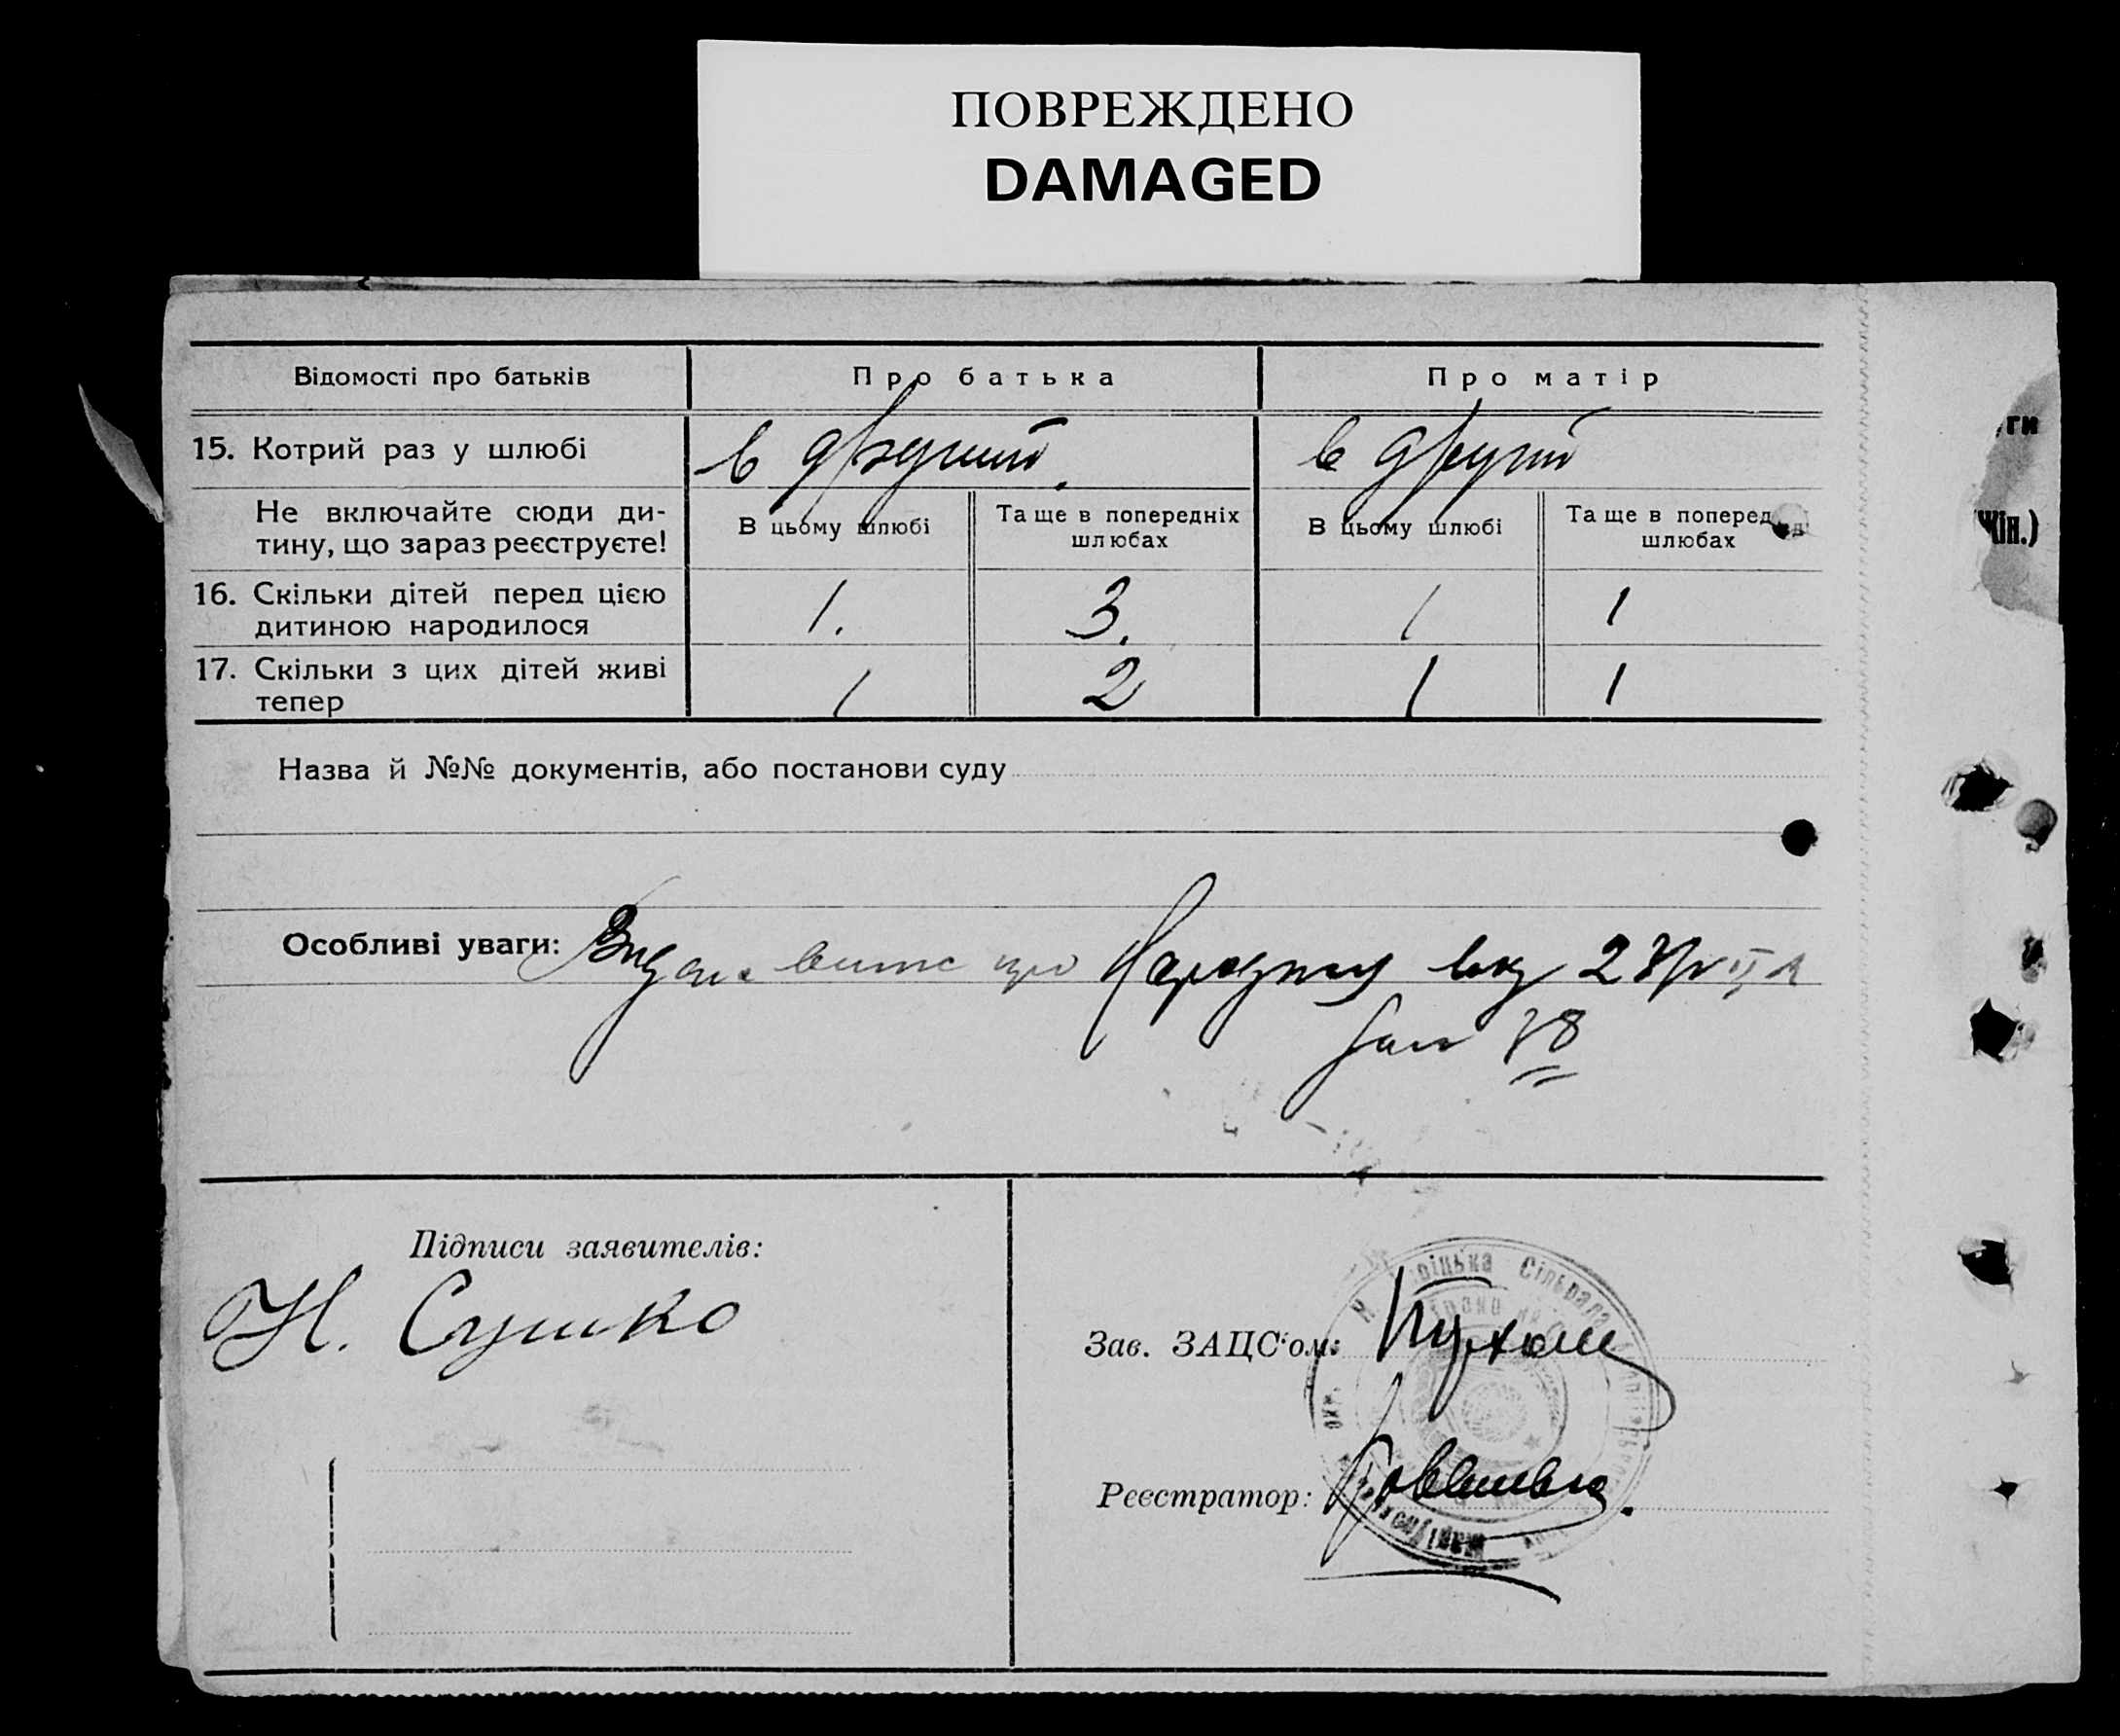 ПОВРЕЖДЕНО
DAMAGED
Відомості про батьків
Про батька
Про матір
15. Котрий раз у шлюбі
в другий
Не включайте сюди ди-
тину, що зараз реєструєте!
В цьому шлюбі
Та ще в попередніх
шлюбах
В цьому шлюбі
Та ще в поперед
шлюбах
16. Скільки дітей перед цією
дитиною народилося
1.
3.
1
1
17. Скільки з цих дітей живі
тепер
1
2
1
1
Назва й №№ документів, або постанови суду
Особливі уваги:
про
28
Підписи заявителів:
Н. Сушко
Зав. ЗАЦС'ом:
Реєстратор:
Сільрада
ги
Жін.)